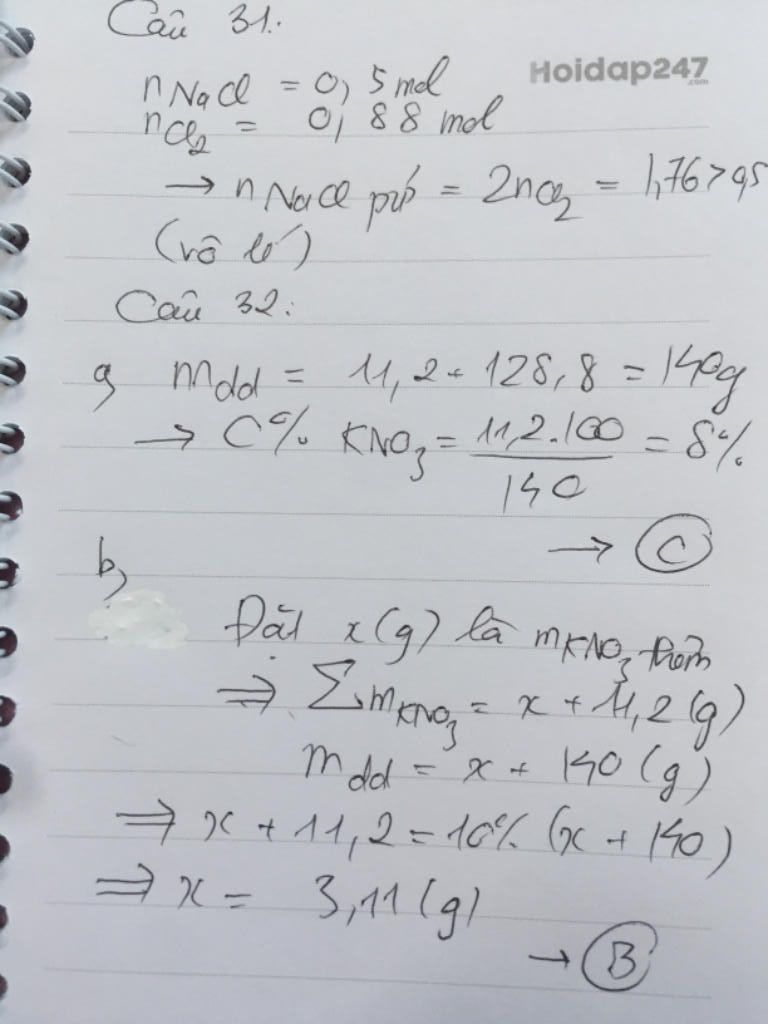 Câu 31:
Hoidap247
.com
nNaCl = 0,5 mol
nCl2 = 0,88 mol
→ nNaCl pứ = 2nCl2 = 1,76 > 0,5
(vô lí)
Câu 32:
a, mdd = 11,2 + 128,8 = 140g
→ C% KNO3 = 11,2.100 / 140 = 8%
→ C
b,
Đặt x(g) là mKNO3 thêm
⇒ ΣmKNO3 = x + 11,2 (g)
mdd = x + 140 (g)
⇒ x + 11,2 = 10% (x + 140)
⇒ x = 3,11 (g)
→ B